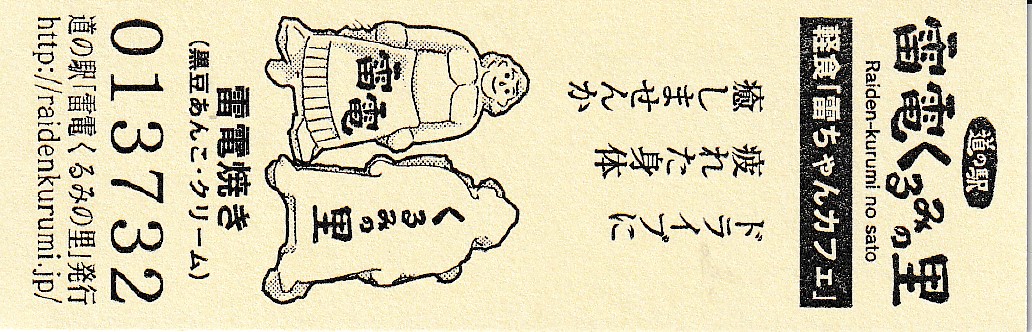 道の駅
雷電くるみの里
Raiden-kurumi no sato
軽食「雷ちゃんカフェ」
ドライブに
疲れた身体
癒しませんか
雷電
くるみの里
雷電焼き
(黒豆あんこ・クリーム)
013732
道の駅「雷電くるみの里」発行
http://raidenkurumi.jp/